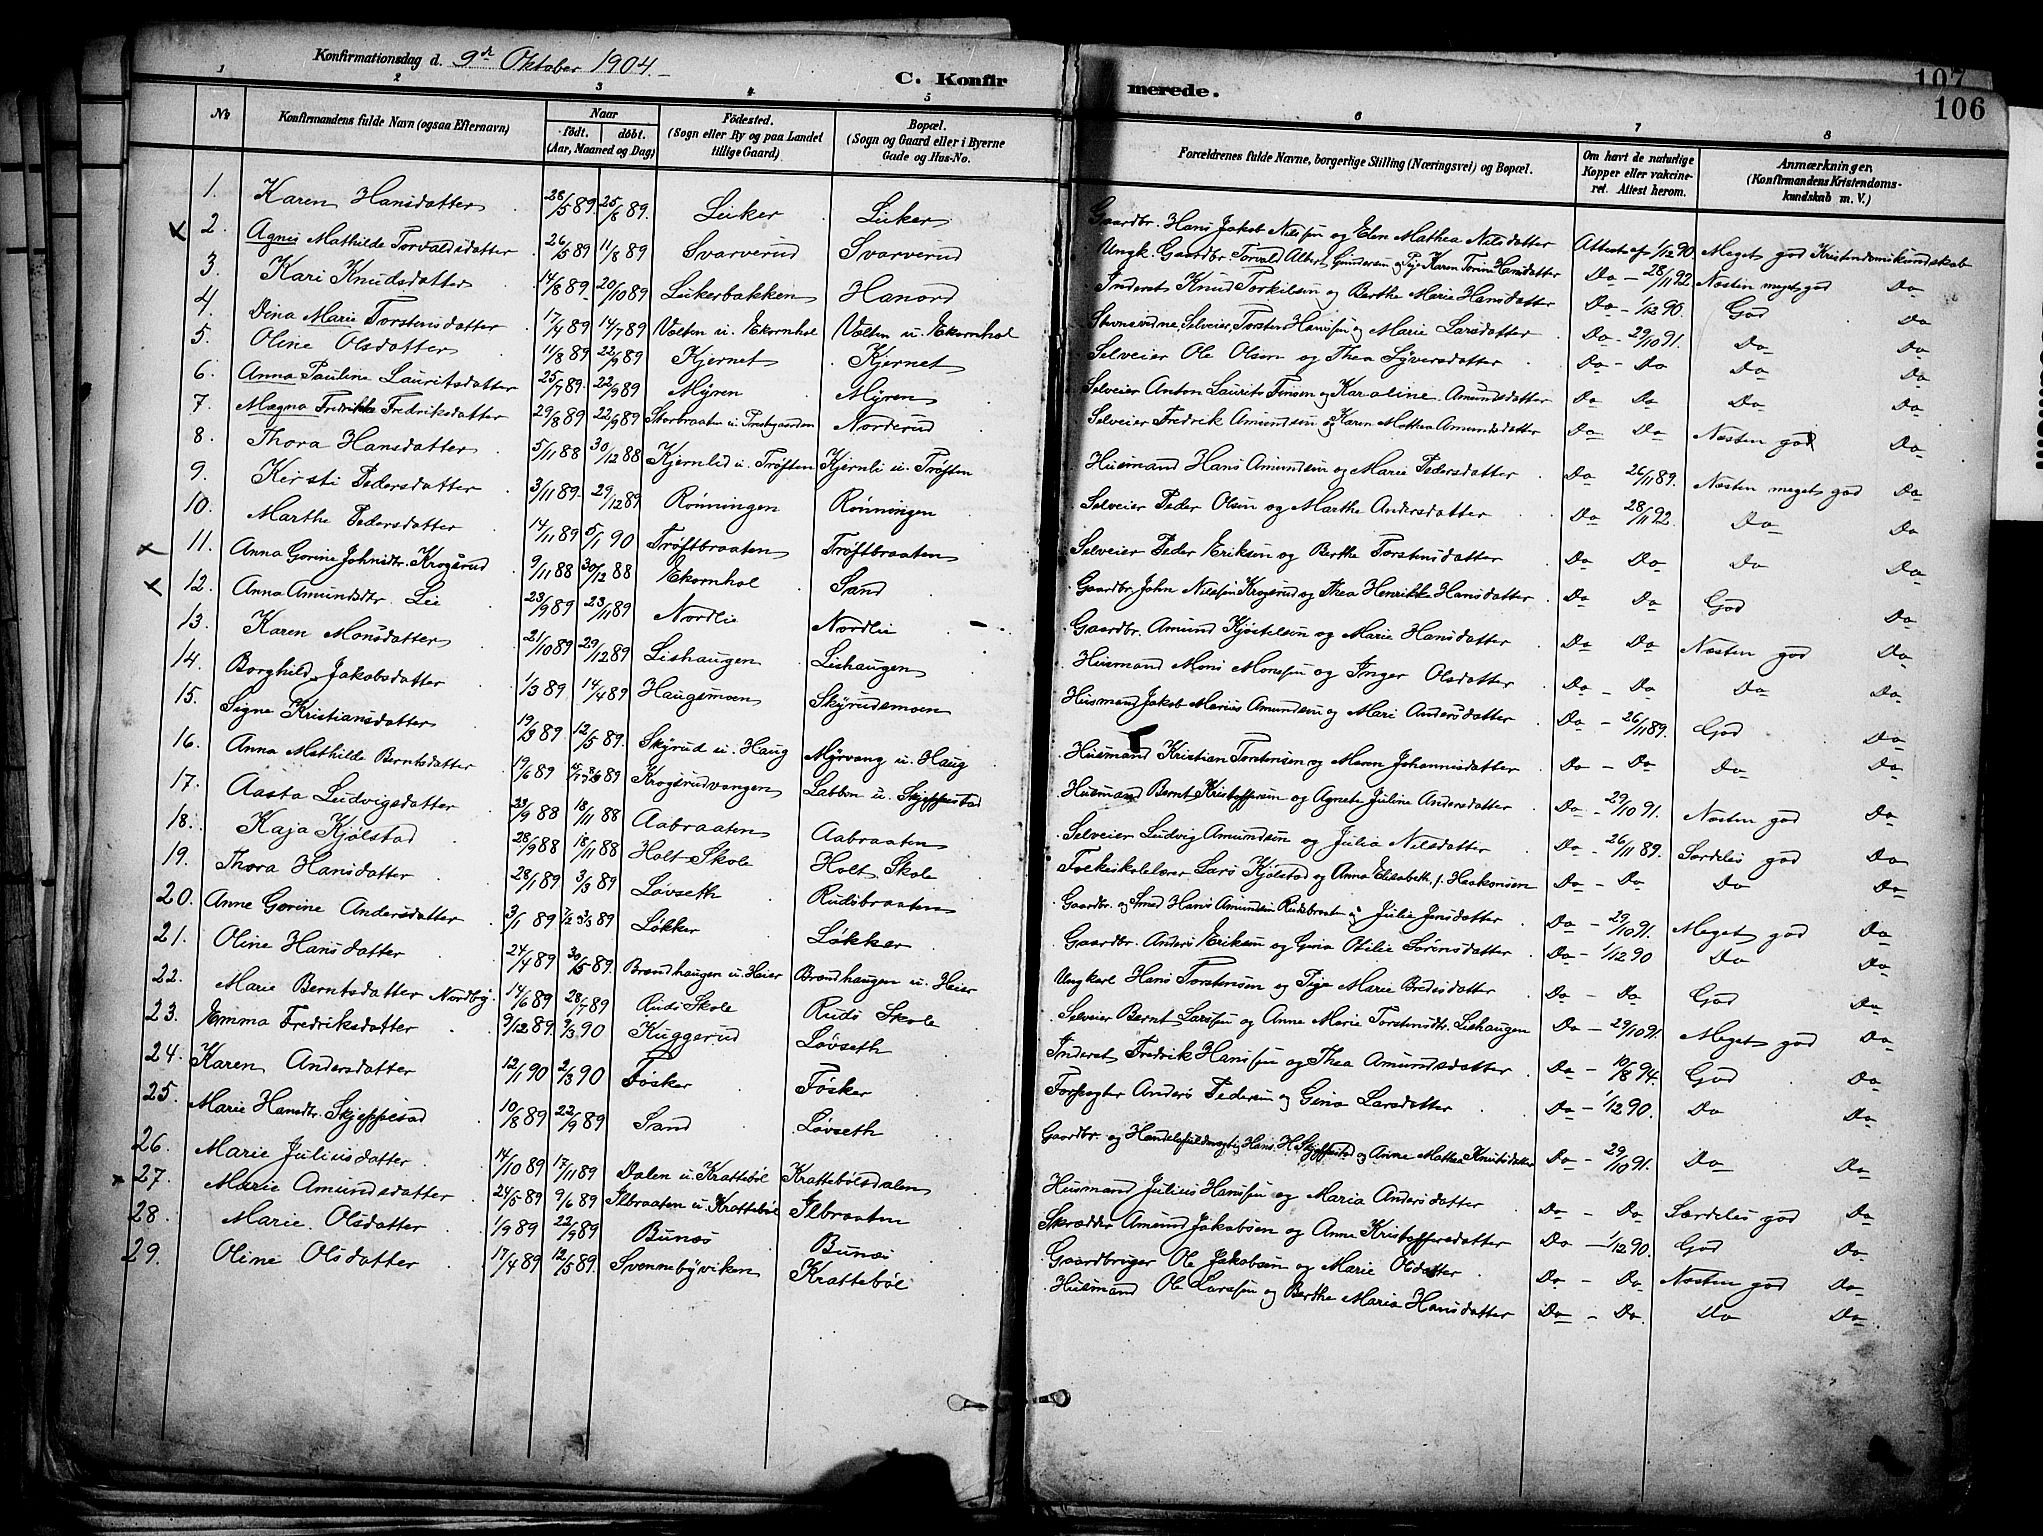 Konfirmationsdag d. 9de Oktober 1904.
C. Konfirmerede.
107
106
1 2 3 4 5 6 7 8
No
Konfirmandens fulde Navn (ogsaa Efternavn)
Naar
født. døbt.
(Aar, Maaned og Dag)
Fødested.
(Sogn eller By og paa Landet
tillige Gaard)
Bopæl.
(Sogn og Gaard eller i Byerne
Gade og Hus-No.
Forældrenes fulde Navne, borgerlige Stilling (Næringsvei) og Bopæl.
Om havt de naturlige
Kopper eller vakcine-
ret. Attest herom.
Anmærkninger
(Konfirmandens Kristendoms-
kundskab m. V.)
1. Karen Hansdatter 28/5 89 25/8 89. Liker Liker Gaardbr. Hans Jakob Nilssen og Elen Mathea Nilsdatter Attest af 1/12 90 Meget god Kristendomskundskab
2. Agnes Mathilde Torvaldsdatter 26/5 89 11/8 89 Svarverud Svarverud Ungk. Gaardbr. Torvald Albert Gundersen og Pige Karen Torine Hansdatter Do - 28/11 92. Næsten meget god Do
3. Kari Knudsdatter 14/8 89 20/10 89 Likerbakken Hanord Inderst Knud Torkilsen og Berthe Marie Hansdatter Do - 1/12 90. God Do
4. Dina Marie Torstensdatter 17/4 89 14/7 89 Volten u. Ekornhol Volten u. Ekornhol Selveier Torsten Hanssen og Marie Larsdatter Do - 29/10 91. Do Do
5. Oline Olsdatter 11/8 89 22/9 89 Kjernet Kjernet Selveier Ole Olsen og Thea Syversdatter Do - Do Do Do
6. Anna Pauline Lauritsdatter 25/7 89. 22/9 89 Myren Myren Selveier Anton Laurits Tonsen og Karoline Amundsdatter Do Do Do Do
7. Magna Fredrikke Fredriksdatter 29/8 89 22/9 89 Storbraaten u. Prestgaarden Norderud Selveier Fredrik Amundsen og Karen Mathea Amundsdatter Do Do Næsten god Do
8. Thora Hansdatter 5/11 88 30/12 88 Kjernlid u. Trøften Kjernli u. Trøften Husmand Hans Amundsen og Marie Pedersdatter Do 26/11 89. Næsten meget god Do
9. Kirsti Pedersdatter 3/11 89. 29/12 89 Rønningen Rønningen Selveier Peder Olsen og Marthe Andersdatter Do 28/11 92. Do Do
10. Marthe Pedersdatter 14/11 89 5/1 90 Trøftbraaten Trøftbraaten Selveier Peder Eriksen og Berthe Torstensdatter Do Do Do Do
11. Anna Gorine Johnsdtr. Krogsrud 9/11 88 30/12 88 Ekornhol Sand Gaardbr. John Nilssen Krogsrud og Thea Henrikke Hansdatter Do Do God Do
12. Anna Amundsdtr. Lie 23/9 89 23/11 89 Nordlie Nordlie Gaardbr. Amund Kjøstelsen og Marie Hansdatter Do Do Næsten god Do
13. Karen Monsdatter 21/10 89 29/12 89 Lishaugen Lishaugen Husmand Mons Monssen og Inger Olsdatter Do - Do Do Do
14. Borghild Jakobsdatter 1/3 89 14/4 89 Haugsmoen Skyrudsmoen Husmand Jakob Marius Amundsen og Mari Andersdatter Do - 26/11 89. God Do
15. Signe Kristiansdatter 19/3 89 12/5 89. Skyrud u. Haug Myrvang u. Haug Husmand Kristian Torstensen og Maren Johannisdatter Do - Do Do Do
16. Anna Mathilde Berntsdatter 19/6 89 89 Krogsrudvangen Labbon u. Skjeppestad Husmand Bernt Kristoffersen og Agnete Juline Andersdatter Do - 29/10 91. Næsten god Do
17. Aasta Ludvigsdatter 23/9 88 18/11 88 Aabraaten Aabraaten Selveier Ludvig Amundsen og Julia Nilsdatter Do - 26/11 89. Særdeles god Do
18. Kaja Kjølstad 28/9 88 18/11 88 Holt Skole Holt Skole Folkeskolelærer Lars Kjølstad og Anna Elisabeth f. Haakonsen Do - Do Do Do
19. Thora Hansdatter 28/1 89 3/3 89 Løvseth Rudsbraaten Gaardbr. og Smed Hans Amundsen Rudsbraaten og Julie Jensdatter Do - 29/10 91. Meget god Do
20. Anne Gorine Andersdatter 3/1 89 7/2 3/3 89 Løkker Løkker Gaardbr. Anders Eriksen og Gina Otilie Sørensdatter Do - 1/12 90 Do Do
21. Oline Hansdatter 24/4 89 30/5 89. Brendhaugen u. Heier Brendhaugen u. Heier Ungkarl Hans Torstensen og Pige Marie Bredesdatter Do - Do God Do
22. Marie Berntsdatter Nordby. 14/6 89 28/7 89 Ruds Skole Ruds Skole Selveier Bernt Larssen og Anne Marie Torstensdtr. Lishaugen Do - 29/10 91. Meget god Do
23. Emma Fredriksdatter 9/12 89. 9/3 90 Kuggerud Løvseth Inderst Fredrik Hanssen og Thea Amundsdatter Do - 10/8 94. God Do
24. Karen Andersdatter 12/1 90 2/3 90 Føsker Føsker Forpagter Anders Pedersen og Gina Larsdatter Do - 1/12 90. Do Do
25. Marie Hansdtr. Skjeppestad 10/8 89 22/9 89 Sand Løvseth Gaardbr. og Handelsfuldmægtig Hans H. Skjeppestad og Anne Mathea Knutsdatter Do - 29/10 91. Do Do
26. Marie Juliusdatter 14/10 89 17/11 89 Dalen u. Krattebøl Krattebølsdalen Husmand Julius Hanssen og Maria Andersdatter Do - Do Særdeles god Do
27. Marie Amundsdatter 24/5 89 9/6 89 Ilbraaten u. Krattebøl Ilbraaten Skrædder Amund Jakobsen og Anne Kristoffersdatter Do - 1/12 90. God Do
28. Marie Olsdatter 1/9 89 22/9 89 Bunæs Bunæs Gaardbruger Ole Jakobsen og Marie Olsdatter Do - Do Næsten god Do
29. Oline Olsdatter 17/4 89 12/5 89. Svennebyviken Krattebøl Husmand Ole Larssen og Berthe Maria Hansdatter Do - Do Do Do